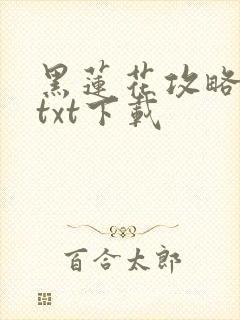 黑蓮花攻略
txt下載
百合太郎